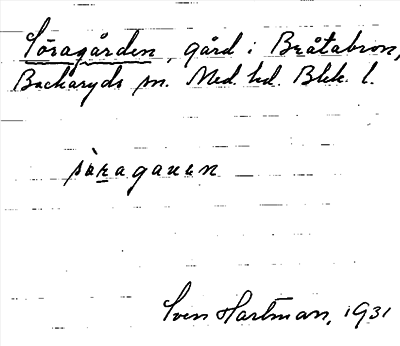 Söragården, gård i Bråtabron,
Backaryds sn. Med. hd. Blek. l.
sὰʀagaʀɛn
Sven Hartman, 1931